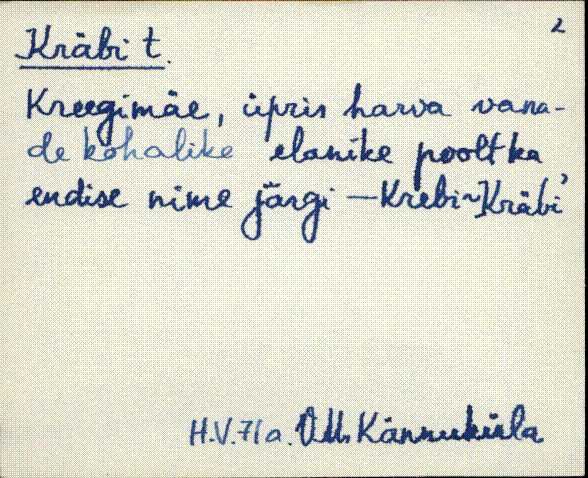 2
Kräbi t.
Kreegimäe, üpris harva vana-
de kohalike elanike poolt ka
endise nime järgi — Krebi ~ Kräbi'
H.V. 71a. Kännuküla